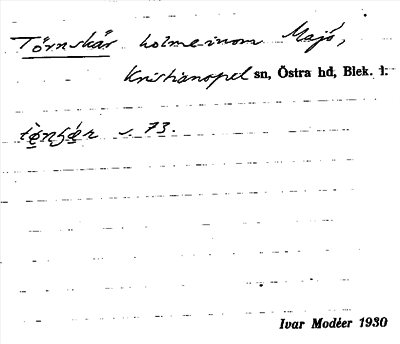 Törnskär holme inom Majö,
Kristianopel sn, Östra hd, Blek. l:
s. 73.
Ivar Modéer 1930